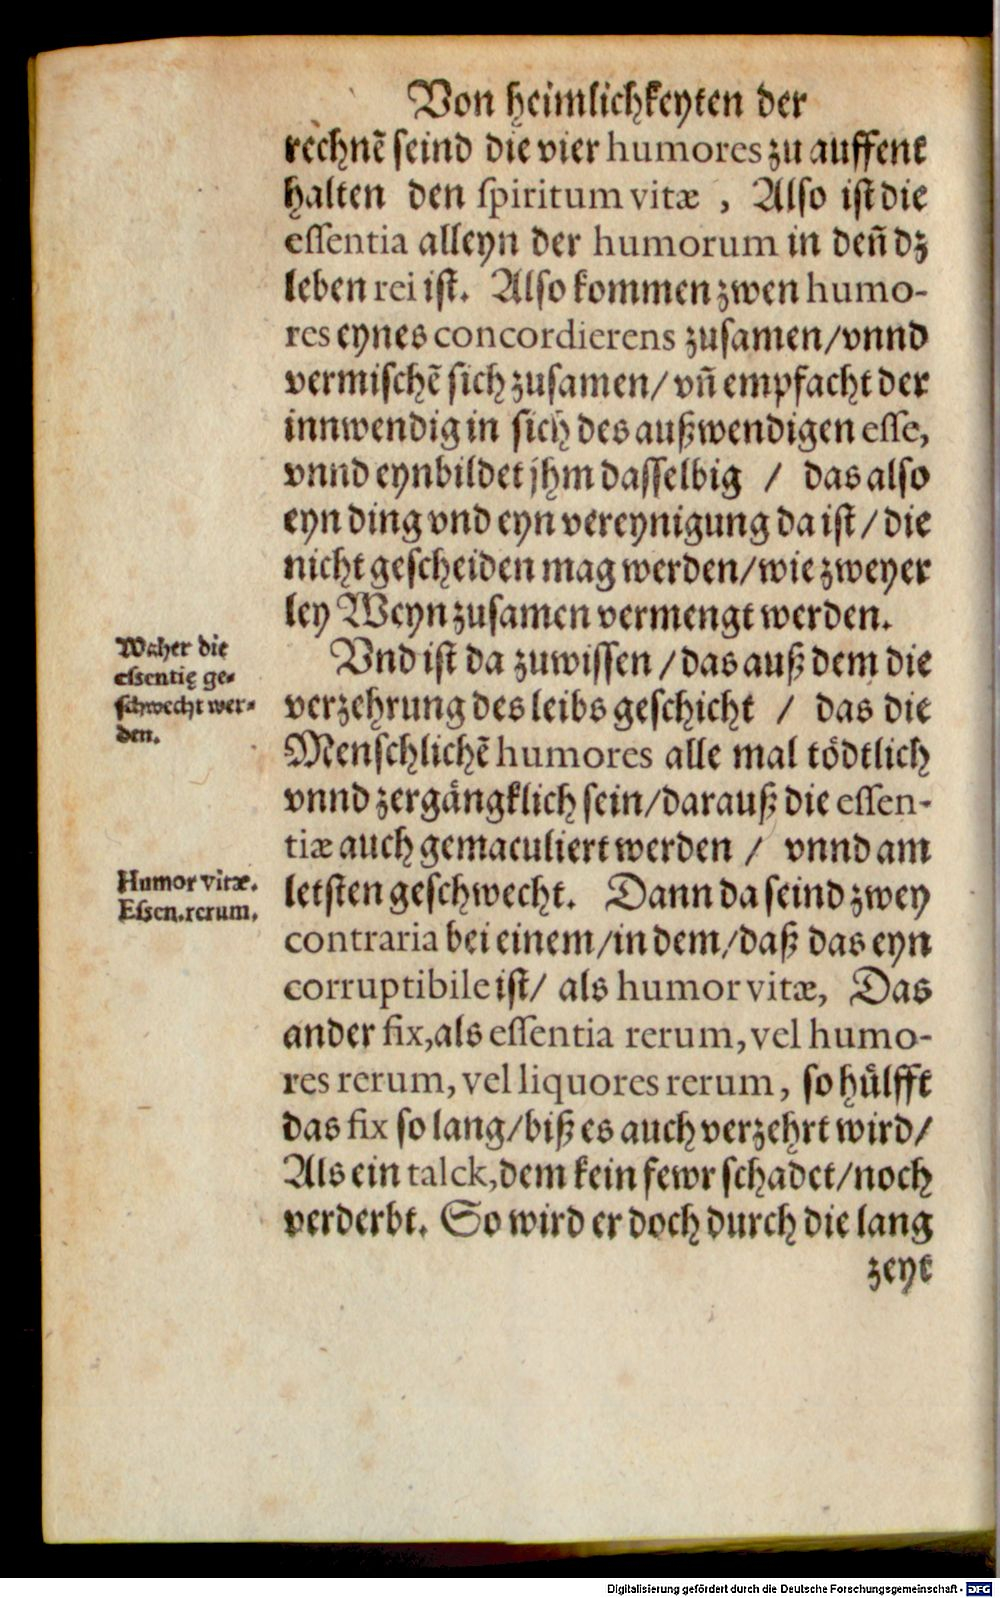 Von heimlichkeyten der
rechnẽ seind die vier humores zu auffent
halten den spiritum vitæ , Also ist die
essentia alleyn der humorum in deñ dz
leben rei ist. Also kommen zwen humo-
res eynes concordierens zusamen/vnnd
vermischẽ sich zusamen/ vñ empfacht der
innwendig in sich des außwendigen esse,
vnnd eynbildet jhm dasselbig / das also
eyn ding vnd eyn vereynigung da ist/ die
nicht gescheiden mag werden/wie zweyer
ley Weyn zusamen vermengt werden.
Waher die
essentię ge-
schwecht wer-
den.
Vnd ist da zuwissen / das auß dem die
verzehrung des leibs geschicht / das die
Menschlichẽ humores alle mal tödtlich
vnnd zergängklich sein/darauß die essen-
tiæ auch gemaculiert werden / vnnd am
Humor vitæ.
Essen.rerum.
letsten geschwecht. Dann da seind zwey
contraria bei einem/in dem/daß das eyn
corruptibile ist/ als humor vitæ, Das
ander fix,als essentia rerum, vel humo-
res rerum, vel liquores rerum, so hülfft
das fix so lang/biß es auch verzehrt wird/
Als ein talck,dem kein fewr schadet/noch
verderbt. So wird er doch durch die lang
zeyt
Digitalisierung gefördert durch die Deutsche Forschungsgemeinschaft - DFG